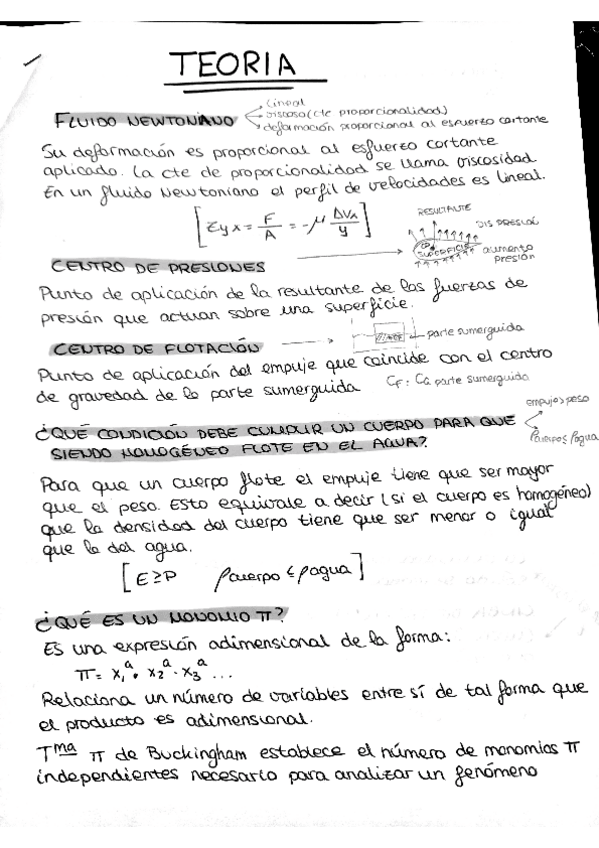 TEORIA
FLUIDO NEWTONIANO
lineal
viscosa (cte proporcionalidad)
deformación proporcional al esfuerzo cortante
Su deformación es proporcional al esfuerzo cortante
aplicado. La cte de proporcionalidad se llama viscosidad.
En un fluido Newtoniano el perfil de velocidades es lineal.
[τyx = F/A = -μ ΔVx/y]
RESULTANTE
DIS PRESIÓN
CP
SUPERFICIE
aumento
presión
CENTRO DE PRESIONES
Punto de aplicación de la resultante de las fuerzas de
presión que actuan sobre una superficie.
CENTRO DE FLOTACIÓN
parte sumerguida
Punto de aplicación del empuje que coincide con el centro
de gravedad de la parte sumerguida
CF: CG parte sumerguida
¿QUÉ CONDICIÓN DEBE CUMPLIR UN CUERPO PARA QUE
SIENDO HOMOGÉNEO FLOTE EN EL AGUA?
empuje > peso
ρcuerpo ≤ ρagua
Para que un cuerpo flote el empuje tiene que ser mayor
que el peso. Esto equivale a decir (si el cuerpo es homogéneo)
que la densidad del cuerpo tiene que ser menor o igual
que la del agua.
[E≥P ρcuerpo ≤ ρagua]
¿QUÉ ES UN MONOMIO π?
Es una expresión adimensional de la forma:
π = x₁ᵃ · x₂ᵃ · x₃ᵃ ...
Relaciona un número de variables entre sí de tal forma que
el producto es adimensional.
Tma π de Buckingham establece el número de monomios π
independientes necesario para analizar un fenómeno